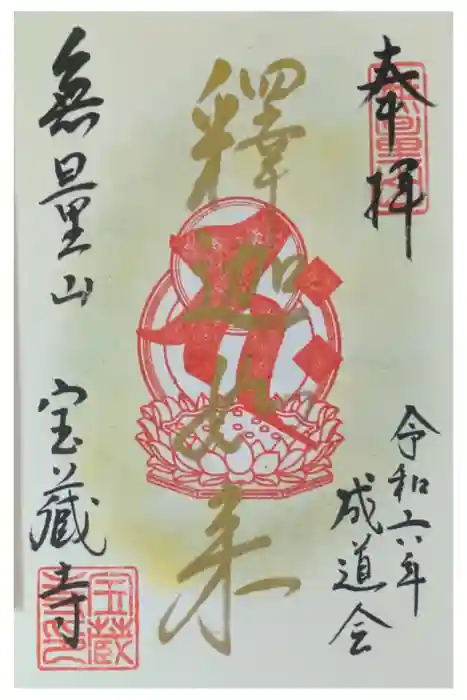 奉拝
令和六年
成道会
釋迦如来
無量山
宝蔵寺